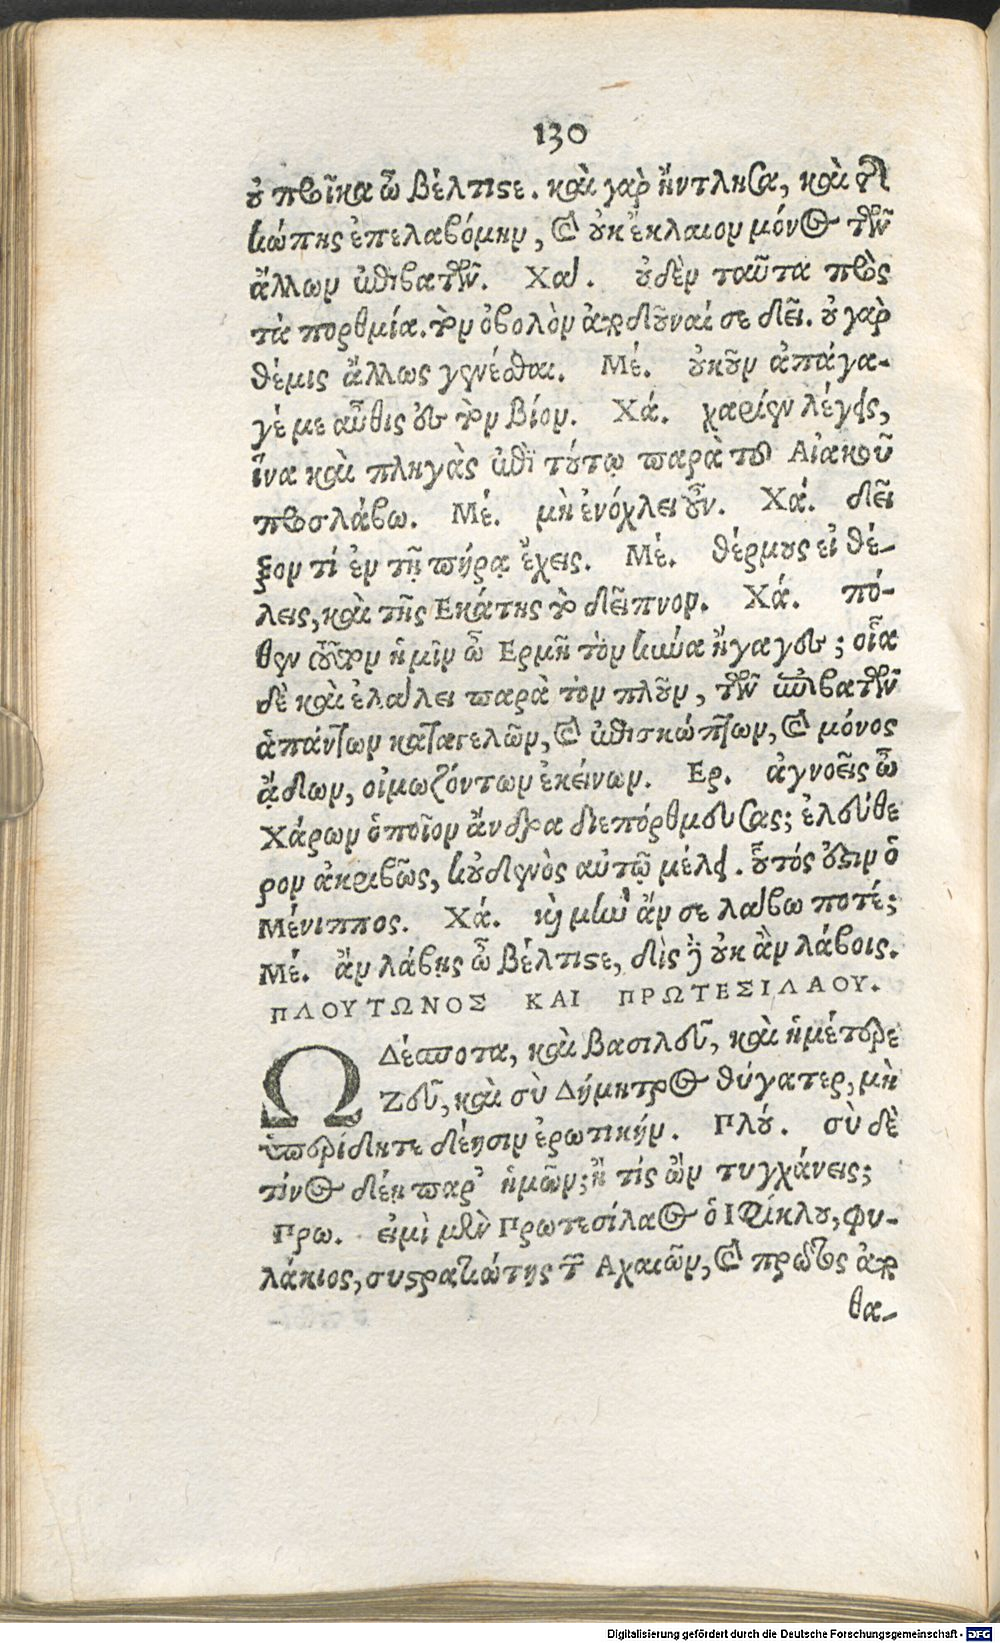 130
οὐ προῖκα ὦ βέλτιστε. καὶ γὰρ ἤντλησα, καὶ τῆς
κώπης ἐπελαβόμην, καὶ οὐκ ἔκλαιον μόνος τῶν
ἄλλων ἐπιβατῶν. Χά. οὐδὲν ταῦτα πρὸς
τὰ πορθμία. τὸν ὀβολὸν ἀποδοῦναί σε δεῖ. οὐ γὰρ
θέμις ἄλλως γενέσθαι. Μέ. οὐκοῦν ἀπάγα-
γέ με αὖθις ἐς τὸν βίον. Χά. χαρίεν λέγεις,
ἵνα καὶ πληγὰς ἐπὶ τούτῳ παρὰ τοῦ Αἰακοῦ
προσλάβω. Μέ. μὴ ἐνόχλει οὖν. Χά. δεῖ
ξον τί ἐν τῇ πήρᾳ ἔχεις. Μέ. θέρμους εἰ θέ-
λεις, καὶ τῆς Εκάτης τὸ δεῖπνον. Χά. πό-
θεν τοῦτον ἡμῖν ὦ Ερμῆ τὸν κύνα ἤγαγες; οἷα
δὲ καὶ ἐλάλει παρὰ τὸν πλοῦν, τῶν ἐπιβατῶν
ἁπάντων καταγελῶν, καὶ ἐπισκώπτων, καὶ μόνος
ᾄδων, οἰμωζόντων ἐκείνων. Ερ. ἀγνοεῖς ὦ
Χάρων ὁποῖον ἄνδρα διεπόρθμευσας; ἐλεύθε
ρον ἀκριβῶς, κοὐδενὸς αὐτῷ μέλει. οὗτός ἐστιν ὁ
Μένιππος. Χά. καὶ μὴν ἄν σε λάβω ποτέ;
Μέ. ἄν λάβῃς ὦ βέλτιστε, δὶς δὲ οὐκ ἂν λάβοις.
ΠΛΟΥΤΩΝΟΣ ΚΑΙ ΠΡΩΤΕΣΙΛΑΟΥ.
Ω Δέσποτα, καὶ βασιλεῦ, καὶ ἡμέτερε
Ζεῦ, καὶ σὺ Δήμητρος θύγατερ, μὴ
ὑπερίδητε δέησιν ἐρωτικήν. Πλού. σὺ δὲ
τίνος δέῃ παρ' ἡμῶν; ἢ τίς ὢν τυγχάνεις;
Πρω. εἰμὶ μὲν Πρωτεσίλαος ὁ Ιφίκλου, φυ-
λάκιος, συστρατιώτης τῶν Αχαιῶν, καὶ πρῶτος ἀπο
θα-
Digitalisierung gefördert durch die Deutsche Forschungsgemeinschaft - DFG